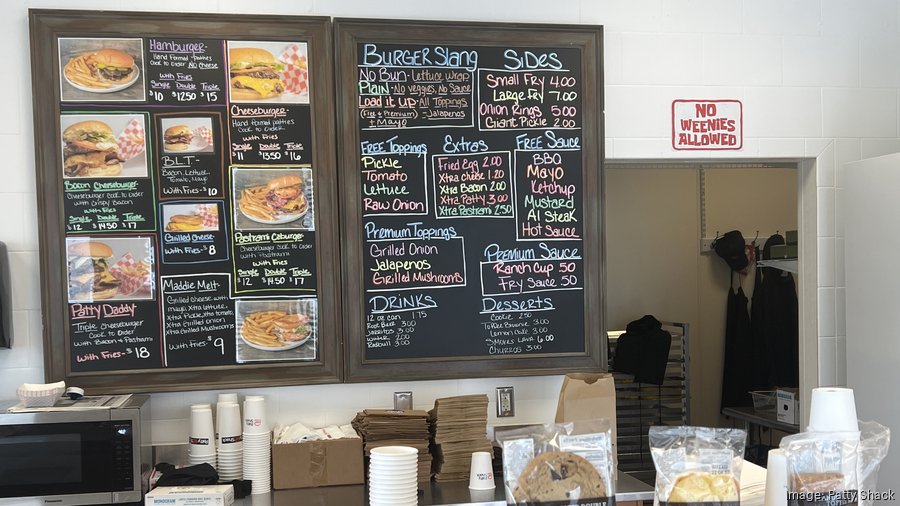 Hamburger-
Hand formed patties
Cook to order No cheese
with Fries
Single Double Triple
$10 $12.50 $15
Cheeseburger-
Hand formed patties
Cook to order
with Fries
Single Double Triple
$11 $13.50 $16
Bacon Cheeseburger-
Cheeseburger cook to order
with Crispy Bacon
with Fries
Single Double Triple
$12 $14.50 $17
BLT-
Bacon, Lettuce,
Tomato, Mayo
With Fries-$10
Grilled Cheese-
With Fries-$8
Pastrami Caburger-
Cheeseburger cook to order
+ Pastrami
with Fries
Single Double Triple
$12 $14.50 $17
Patty Daddy-
Triple Cheeseburger
Cook to order
with Bacon & Pastrami
With Fries-$18
Maddie Melt-
Grilled cheese with
mayo, Xtra lettuce,
Xtra Pickle, Xtra tomato,
Xtra Grilled Onion
Xtra Grilled Mushrooms
with Fries-$9
Burger Slang
No Bun-Lettuce wrap
Plain-No veggies, No Sauce
Load it up-All Toppings
(Free & Premium) -Jalapenos
+ Mayo
Sides
Small Fry 4.00
Large Fry 7.00
Onion Rings 5.00
Giant Pickle 2.00
Free Toppings
Pickle
Tomato
Lettuce
Raw Onion
Extras
Fried Egg 2.00
Xtra cheese 1.20
Xtra Bacon 2.00
Xtra Patty 3.00
Xtra Pastrami 2.50
Free Sauce
BBQ
Mayo
Ketchup
Mustard
A1 Steak
Hot Sauce
Premium Toppings
Grilled Onion
Jalapenos
Grilled Mushrooms
Premium Sauce
Ranch Cup .50
Fry Sauce .50
Drinks
12 oz can 1.75
Root Beer 3.00
3.00
Water 2.00
Redbull 3.00
Desserts
Cookie 2.50
Brownie 3.00
Lemon Cake 3.00
Smores Lava 6.00
Churros 3.00
NO
WEENIES
ALLOWED
Panasonic
MONOGRAM
Image: Patty Shack